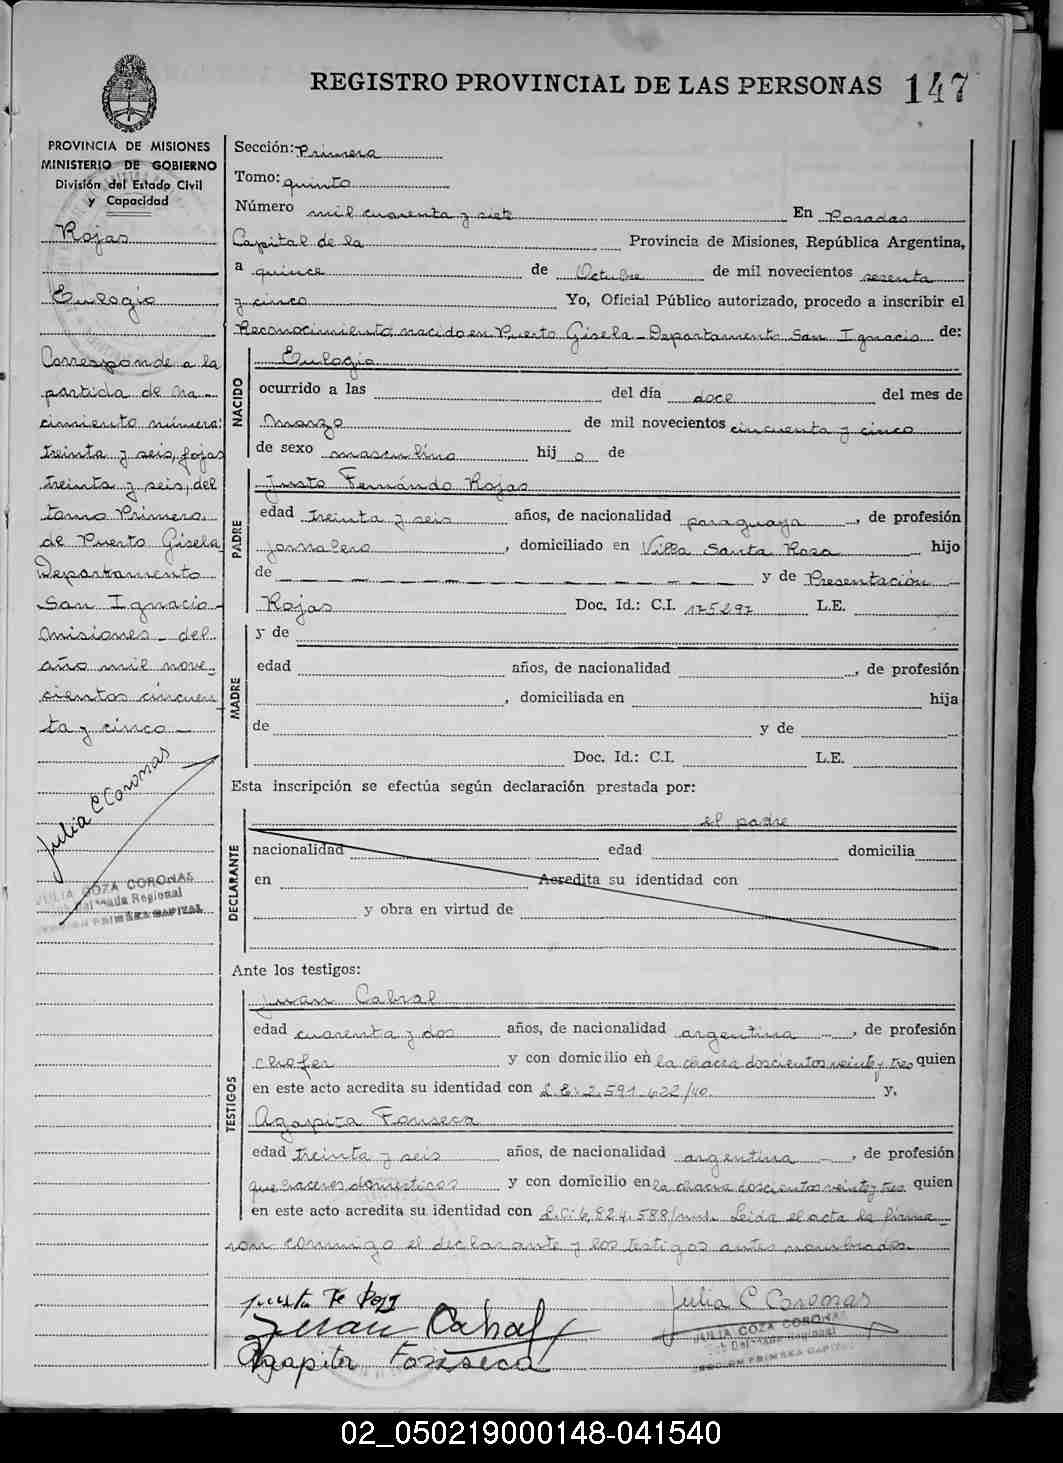 REGISTRO PROVINCIAL DE LAS PERSONAS 147
PROVINCIA DE MISIONES
MINISTERIO DE GOBIERNO
División del Estado Civil
y Capacidad
Rojas
Eulogio
Corresponde a la
partida de na-
cimiento número:
treinta y seis, fojas
treinta y seis, del
tomo Primero,
de Puerto Gisela
Departamento
San Ignacio
Misiones - del
año mil nove-
cientos cincuen
ta y cinco -
Julia C Coronas
JULIA GOZA CORONAS
Regional
PRIMERA CAPITAL
Sección: Primera
Tomo: quinto
Número mil cuarenta y siete En Posadas
Capital de la Provincia de Misiones, República Argentina,
a quince de Octubre de mil novecientos sesenta
y cinco Yo, Oficial Público autorizado, procedo a inscribir el
Reconocimiento, nacido en Puerto Gisela - Departamento San Ignacio de:
NACIDO
Eulogio
ocurrido a las del día doce del mes de
Marzo de mil novecientos cincuenta y cinco
de sexo masculino hij o de
PADRE
Justo Fernándo Rojas
edad treinta y seis años, de nacionalidad paraguaya, de profesión
jornalero, domiciliado en Villa Santa Rosa hijo
de y de Presentación
Rojas Doc. Id.: C.I. 175297 L.E.
MADRE
y de
edad años, de nacionalidad , de profesión
, domiciliada en hija
de y de
Doc. Id.: C.I. L.E.
Esta inscripción se efectúa según declaración prestada por:
DECLARANTE
el padre
nacionalidad edad domicilia
en Acredita su identidad con
y obra en virtud de
Ante los testigos:
TESTIGOS
Juan Cabral
edad cuarenta y dos años, de nacionalidad argentina, de profesión
chofer y con domicilio en la chacra doscientos veinte y tres quien
en este acto acredita su identidad con L.E: 2.591.622/40. y.
Agapita Fonseca
edad treinta y seis años, de nacionalidad argentina -, de profesión
quehaceres domesticos y con domicilio en la chacra doscientos veinte y tres quien
en este acto acredita su identidad con L.C: 6.824.588/ Leida el acta la firma-
ron conmigo el declarante y los testigos antes nombrados
Juan Cabral
Agapita Fonseca
Julia C Coronas
JULIA GOZA CORONAS
Regional
SECCION PRIMERA CAPITAL
02_050219000148-041540